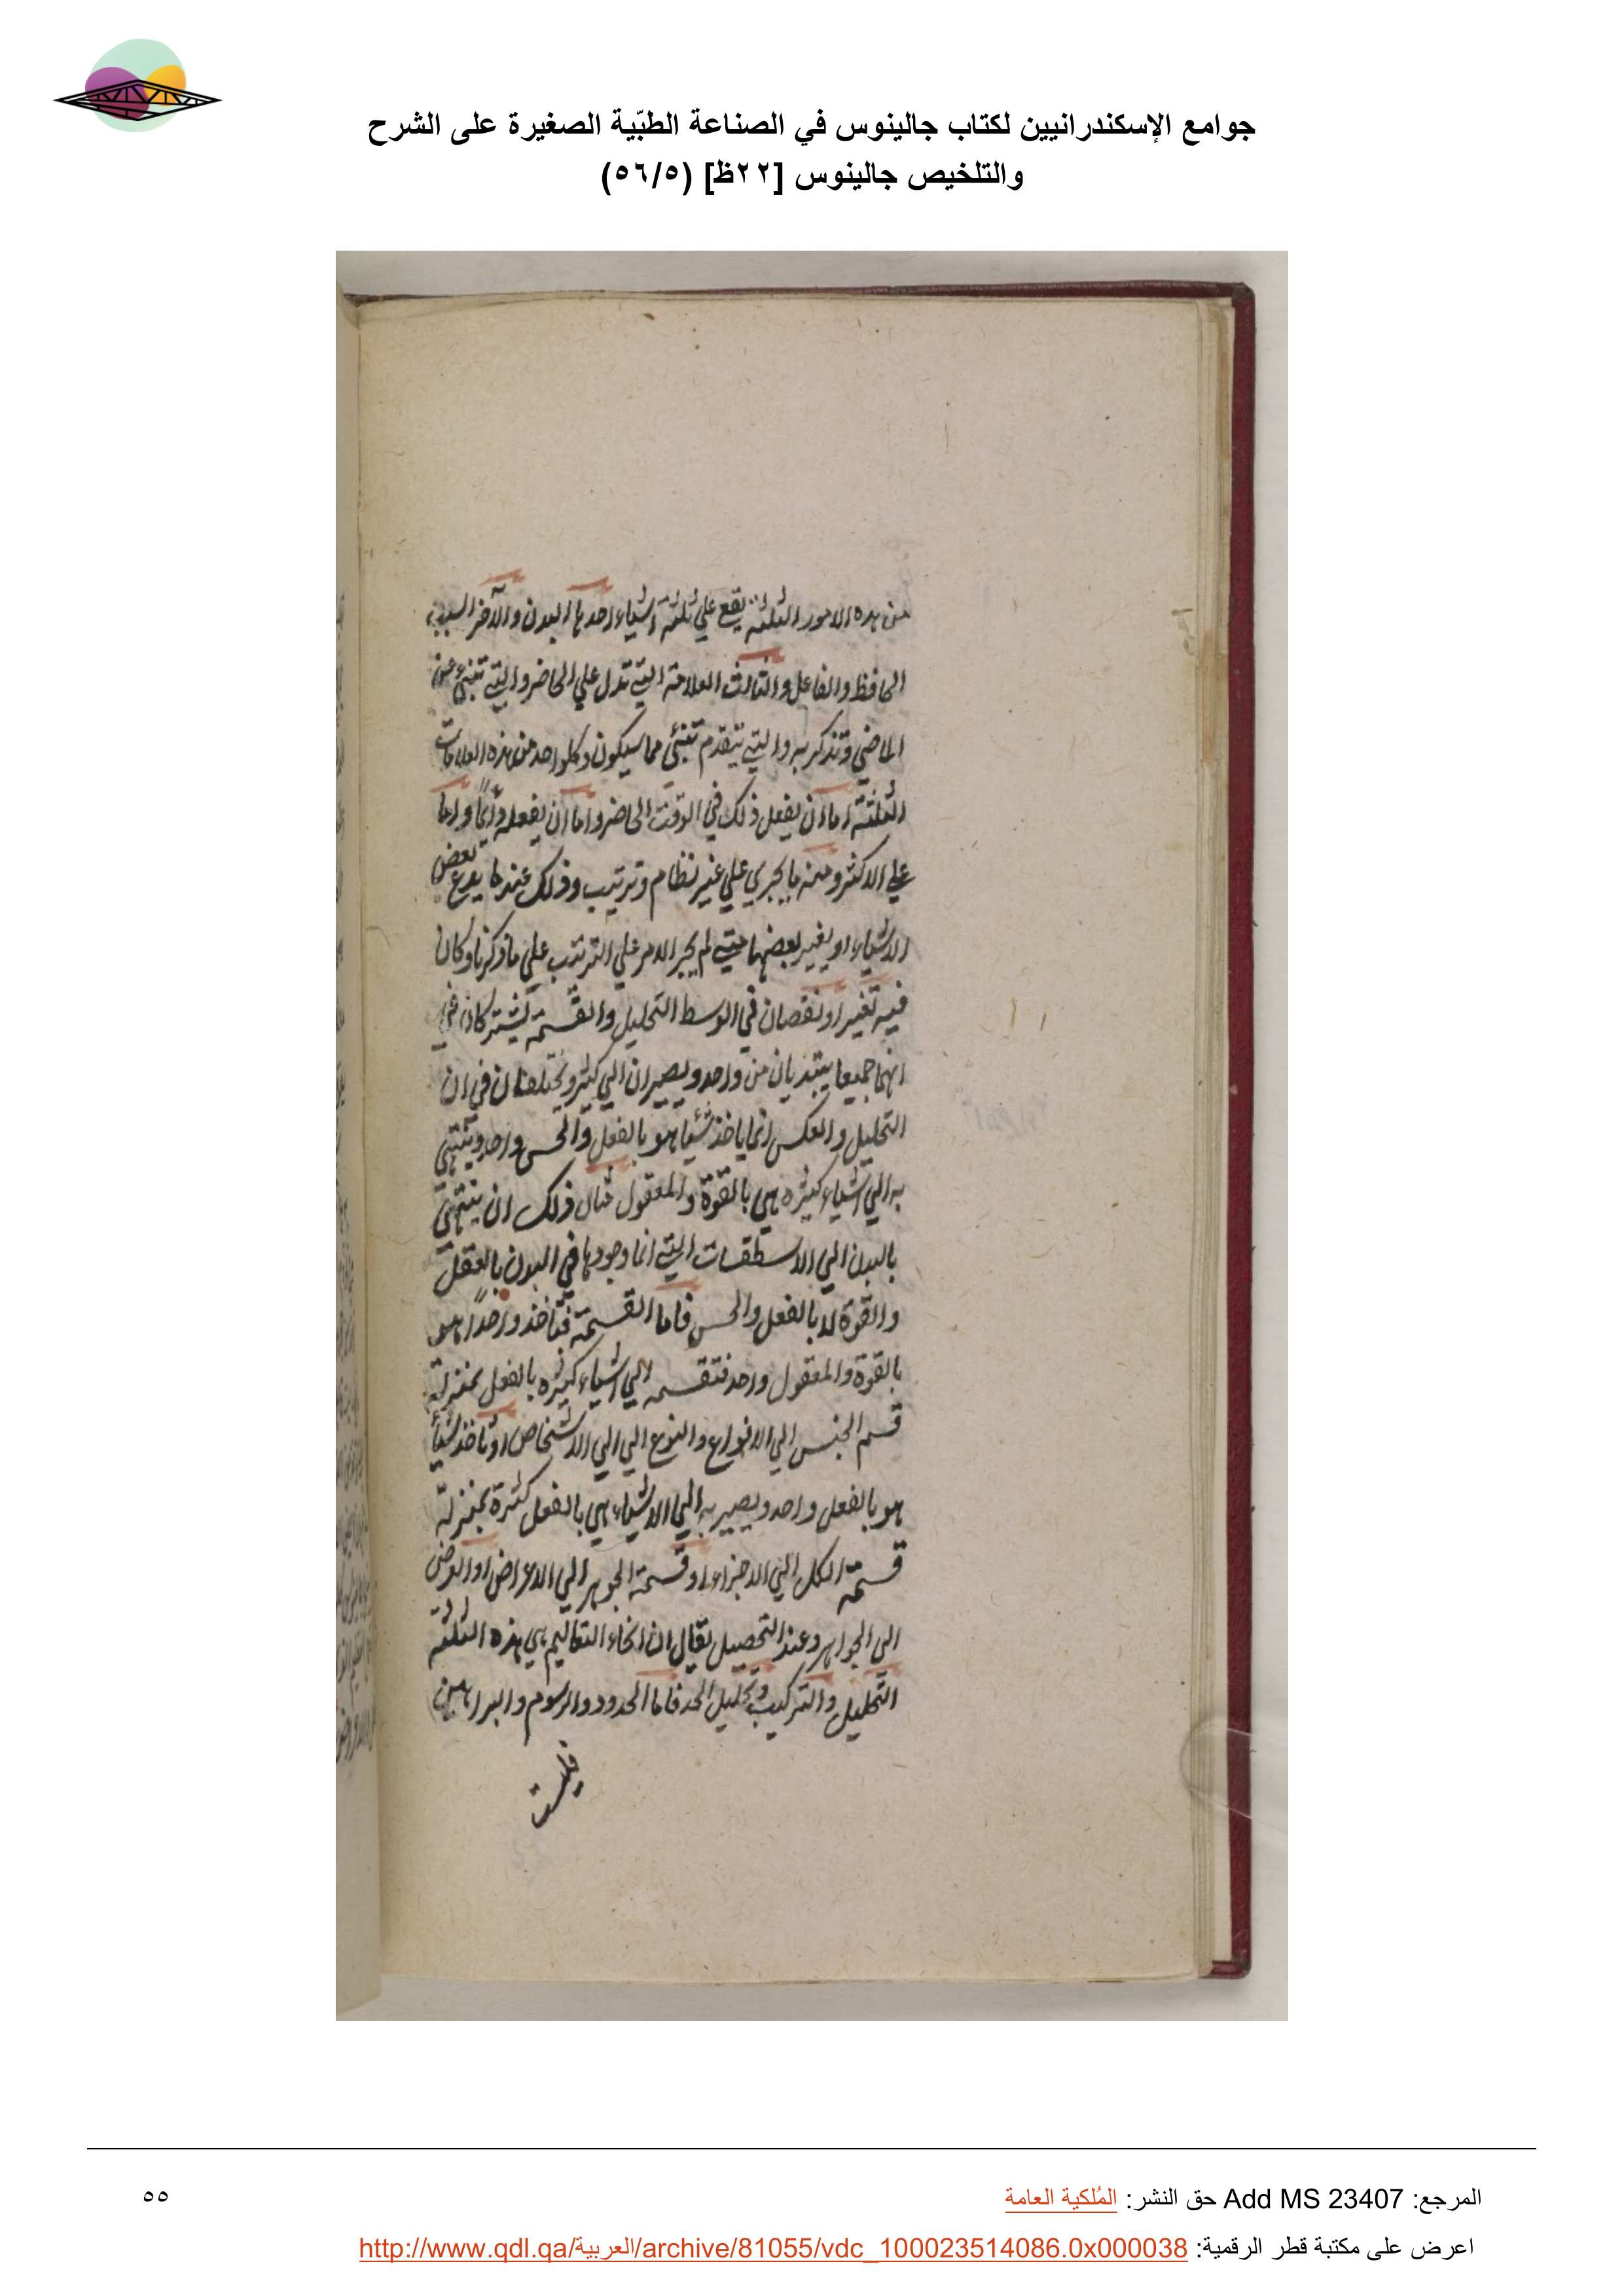 جوامع الإسكندرانيين لكتاب جالينوس في الصناعة الطبّية الصغيرة على الشرح
والتلخيص جالينوس [٢٢ظ] (٥٦/٥)
من هذه الامور الثلثة يقع علي ثلثة اشياء احدها البدن والآخر السبب
الحافظ والفاعل والثالث العلامة التي تدل علي الحاضر والتي تنبئ عن
الماضي وتذكر به والتي يتقدم تنبئ مما سيكون وكلواحد من هذه العلامات
الثلثة اما ان يفعل ذلك في الوقت الحاضر واما ان يفعله دائمًا واما
علي الاكثر ومنه ما يجري علي غير نظام وترتيب وذلك عندما يدع بعض
الاشياء او يغير بعضها متي لم يجر الامر علي الترتيب علي ما ذكرنا وكان
فيه تغير او نقصان في الوسط التحليل والقسمة يشتركان في
انهما جميعا يبتديان من واحد ويصيران الي كثير ويختلفان في ان
التحليل والعكس انما ياخذ شيئا هو بالفعل والحس واحد وينتهي
به الي اشياء كثيره هي بالقوة والمعقول مثال ذلك ان ينتهي
بالبدن الي الاسطقسات التي انما وجودها في البدن بالعقل
والقوة لا بالفعل والحس فاما القسمة فتاخذ واحدًا هو
بالقوة والمعقول واحد فتقسمه الي اشياء كثيره بالفعل بمنزلة
قسم الجنس الي الانواع والنوع الي الي الاشخاص او تاخذ شيئًا
هو بالفعل واحد ويصير به الي الاشياء هي بالفعل كثرة بمنزلة
قسمة الكل الي الاجزاء او قسمة الجوهر الي الاعراض او العرض
الي الجواهر وعند التحصيل يقال ان انحاء التعاليم هي هذه الثلثة
التحليل والتركيب وتحليل الحد فاما الحدود والرسوم والبراهين
فليست
المرجع: Add MS 23407 حق النشر: المُلكية العامة
٥٥
اعرض على مكتبة قطر الرقمية: http://www.qdl.qa/العربية/archive/81055/vdc_100023514086.0x000038